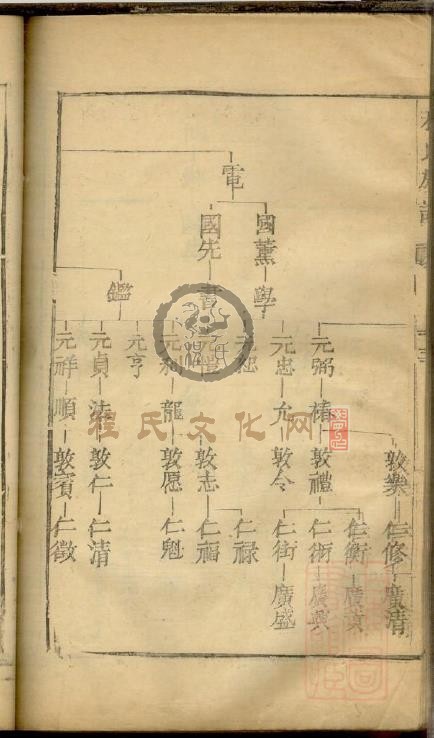 電
國薰 學
國先 書
鑑
敦樂 仁修 廣清
元弼 椿 敦禮 仁術 廣興
仁衡 廣京
元忠 允 敦令 仁街 廣盛
仁禄
元愷 敦志 仁福
元利 龍 敦愿 仁魁
元亨
元貞 法 敦仁 仁清
元祥 順 敦賓 仁徵
程氏文化网